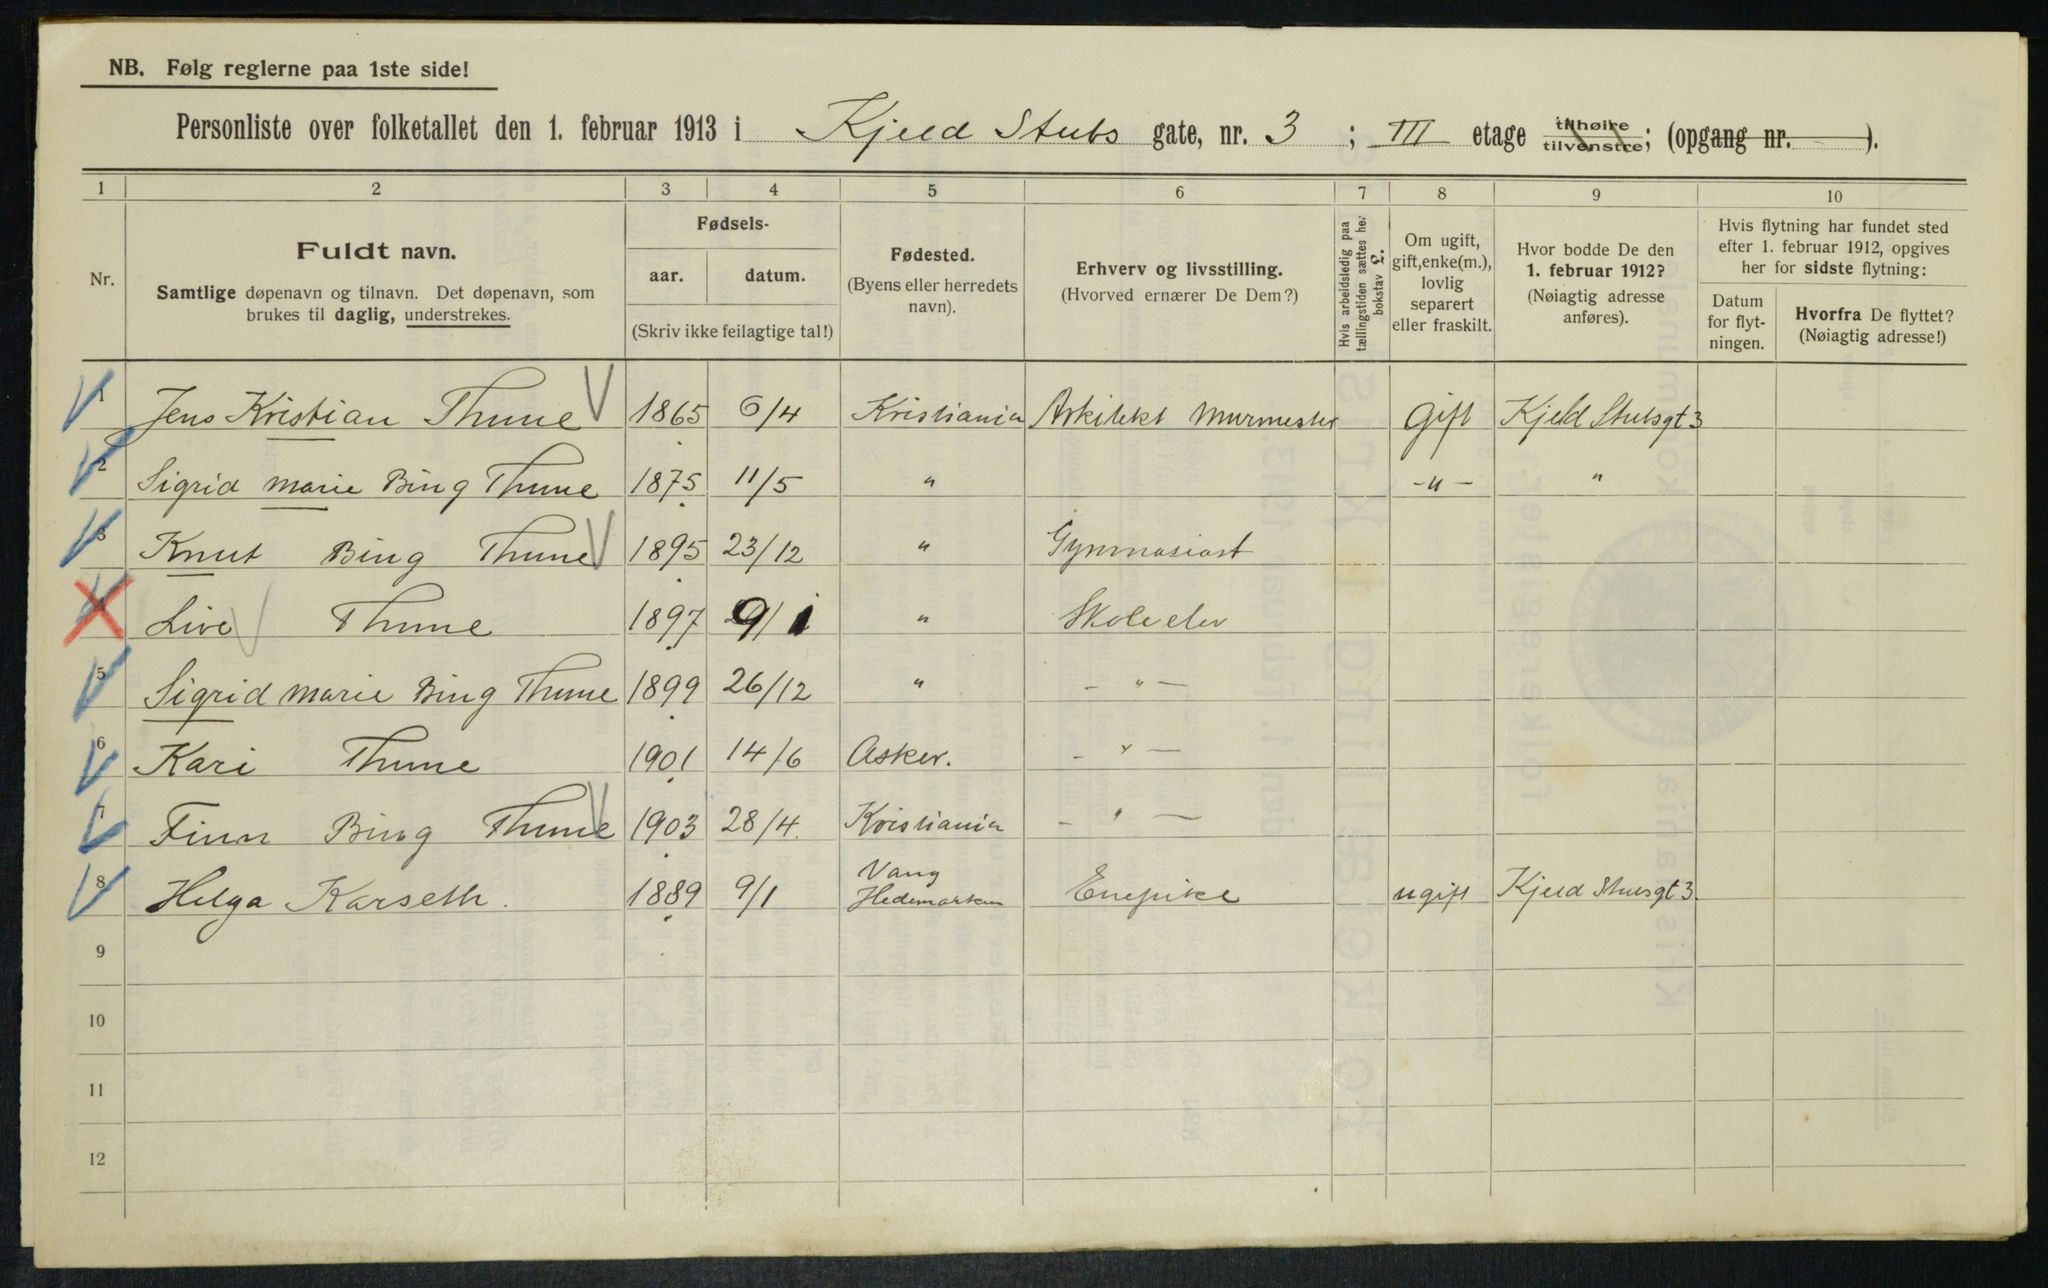 NB. Følg reglerne paa 1ste side!
Personliste over folketallet den 1. februar 1913 i Kjeld Stubs gate, nr. 3 ; III etage tilhøire tilvenstre; (opgang nr. ).
1 2 3 4 5 6 7 8 9 10
Nr.
Fuldt navn.
Samtlige døpenavn og tilnavn. Det døpenavn, som
brukes til daglig, understrekes.
Fødsels-
aar. datum.
(Skriv ikke feilagtige tal!)
Fødested.
(Byens eller herredets
navn).
Erhverv og livsstilling.
(Hvorved ernærer De Dem?)
Hvis arbeidsledig paa
tællingstiden sættes her
bokstav L.
Om ugift,
gift, enke(m.),
lovlig
separert
eller fraskilt.
Hvor bodde De den
1. februar 1912?
(Nøiagtig adresse
anføres).
Hvis flytning har fundet sted
efter 1. februar 1912, opgives
her for sidste flytning:
Datum
for flyt-
ningen.
Hvorfra De flyttet?
(Nøiagtig adresse!)
1 Jens Kristian Thune 1865 6/4 Kristiania Arkitekt Murmester Gift Kjeld Stubsgt 3
2 Sigrid Marie Bing Thune 1875 11/5 " -"- "
3 Knut Bing Thune 1895 23/12 " Gymnasiast
4 Live Thune 1897 9/1 " Skoleelev
5 Sigrid Marie Bing Thune 1899 26/12 " - " -
6 Kari Thune 1901 14/6 Asker. - " -
7 Finn Bing Thune 1903 28/4. Kristiania - " -
8 Helga Karseth. 1889 9/1 Vang
Hedemarken Enepike ugift Kjeld Stubsgt 3.
9
10
11
12